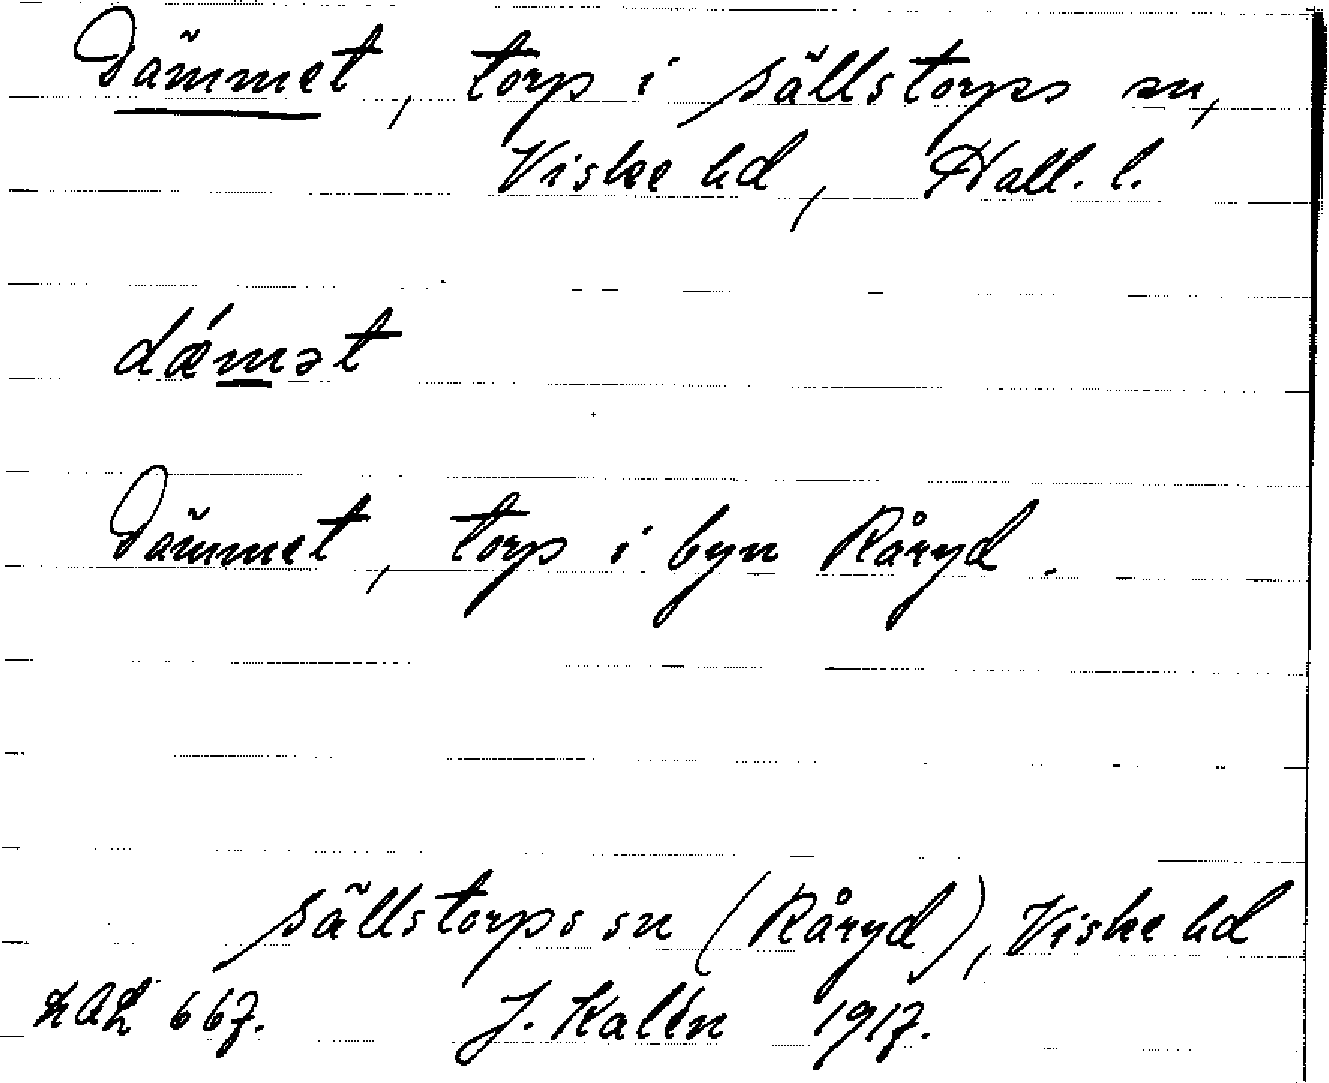 Dämmet, torp i Sällstorps sn,
Viske hd, Hall. l.
dǽmət
Dämmet, torp i byn Råryd.
Sällstorps sn (Råryd), Viske hd
LAL 667. J. Kalén 1917.